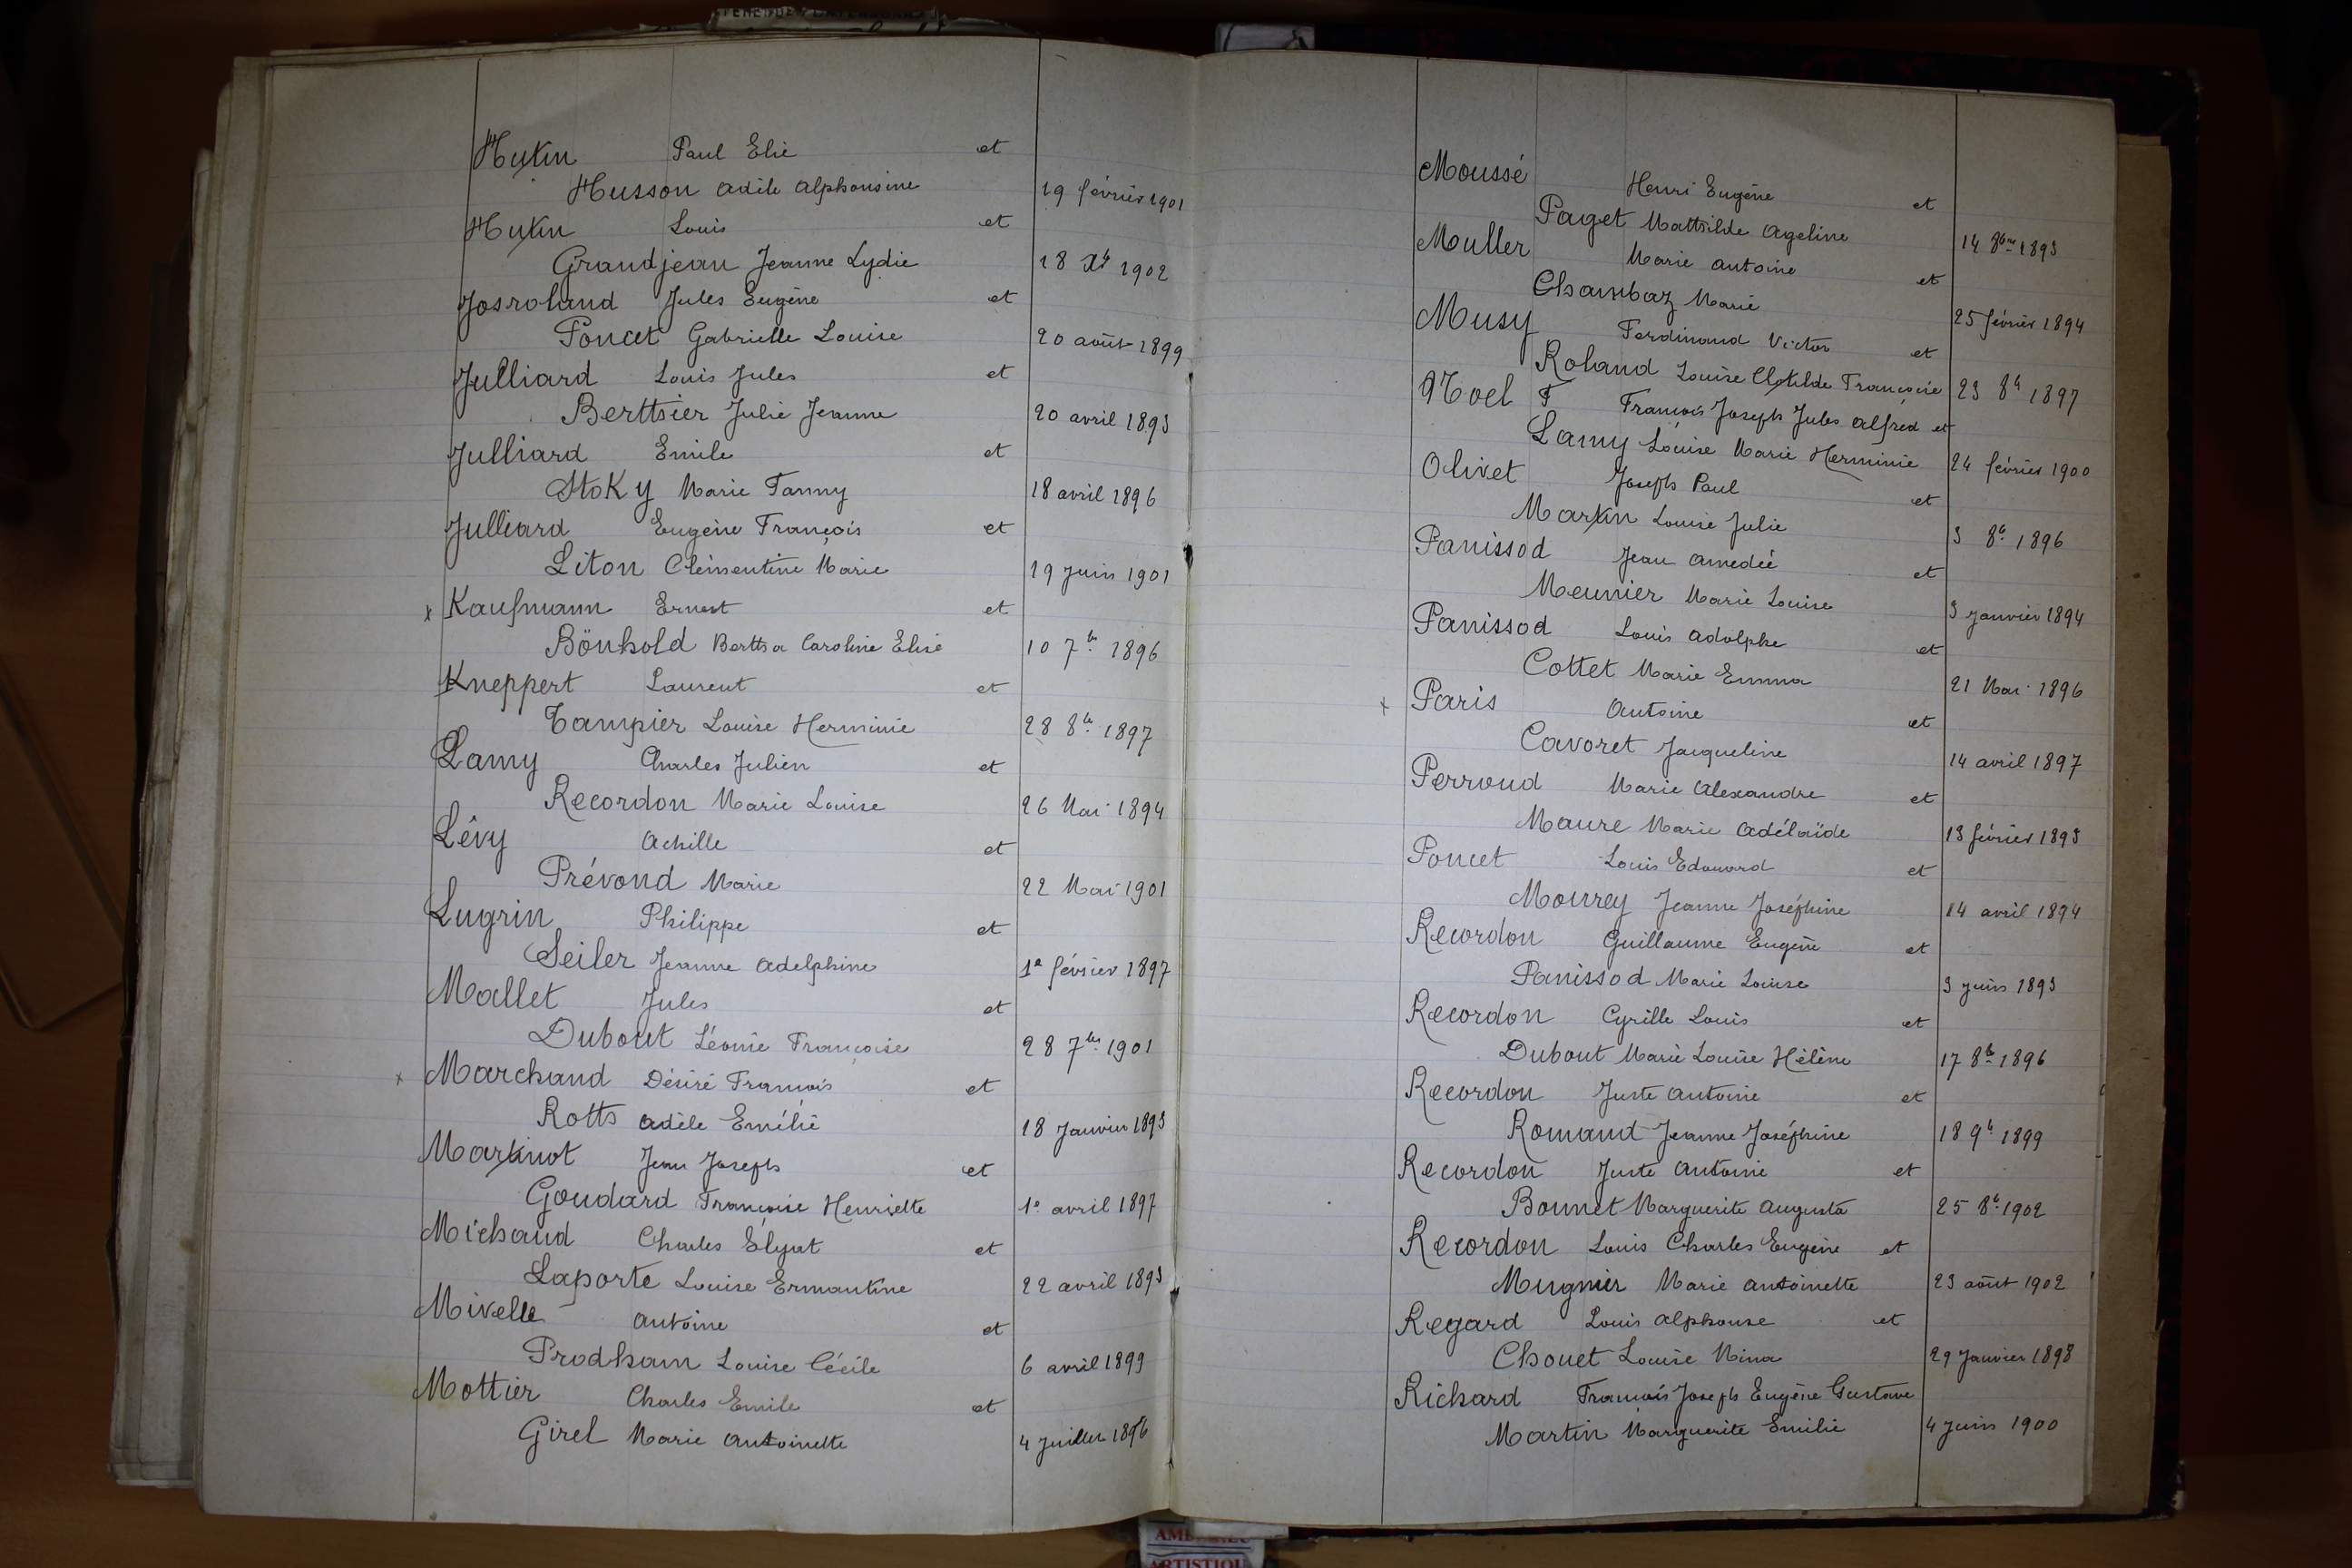 Hutin Paul Elie et
Husson Adèle Alphonsine 19 février 1901
Hutin Louis et
Grandjean Jeanne Lydie 18 Xbre 1902
Josroland Jules Eugène et
Poncet Gabrielle Louise 20 août 1899
Julliard Louis Jules et
Berthier Julie Jeanne 20 avril 1893
Julliard Emile et
Stoky Marie Fanny 18 avril 1896
Julliard Eugène François et
Liton Clémentine Marie 19 Juin 1901
x Kaufmann Ernest et
Bönhold Bertha Caroline Elise 10 7bre 1896
Kneppert Laurent et
Tampier Louise Herminie 28 8bre 1897
Lamy Charles Julien et
Recordon Marie Louise 26 Mai 1894
Lévy Achille et
Prévond Marie 22 Mai 1901
Lugrin Philippe et
Seiler Jeanne Adelphine 1e février 1897
Mallet Jules et
Dubout Léonie Françoise 28 7bre 1901
x Marchand Désiré François et
Roth Adèle Emélie 18 Janvier 1893
Martinot Jean Joseph et
Goudard Françoise Henriette 1e avril 1897
Michaud Charles et
Laporte Louise Ermantine 22 avril 1893
Mivelle Antoine et
Prodham Louise Cécile 6 avril 1899
Mottier Charles Emile et
Girel Marie Antoinette 4 Juillet 1896
Moussé Henri Eugène et
Paget Mathilde Ageline 14 8bre 1893
Muller Marie Antoine et
Chambaz Marie 25 février 1894
Musy Ferdinand Victor et
Roland Louise Clotilde Françoise 23 8bre 1897
Noel F François Joseph Jules Alfred et
Lamy Louise Marie Herminie 24 février 1900
Olivet Joseph Paul et
Martin Louise Julie 3 8bre 1896
Panissod Jean Amedée et
Meunier Marie Louise 3 Janvier 1894
Panissod Louis Adolphe et
Cottet Marie Emma 21 Mai 1896
x Paris Antoine et
Cavoret Jacqueline 14 avril 1897
Perroud Marie Alexandre et
Maure Marie Adélaïde 13 février 1893
Poncet Louis Edouard et
Mourey Jeanne Joséphine 14 avril 1894
Recordon Guillaume Eugène et
Panissod Marie Louise 3 Juin 1893
Recordon Cyrille Louis et
Dubout Marie Louise Hélène 17 8bre 1896
Recordon Juste Antoine et
Romand Jeanne Joséphine 18 9bre 1899
Recordon Juste Antoine et
Bonnet Marguerite Augusta 25 8bre 1902
Recordon Louis Charles Eugène et
Mugnier Marie Antoinette 23 août 1902
Regard Louis Alphonse et
Chouet Louise Nina 29 Janvier 1898
Richard François Joseph Eugène Gustave
Martin Marguerite Emilie 4 Juin 1900